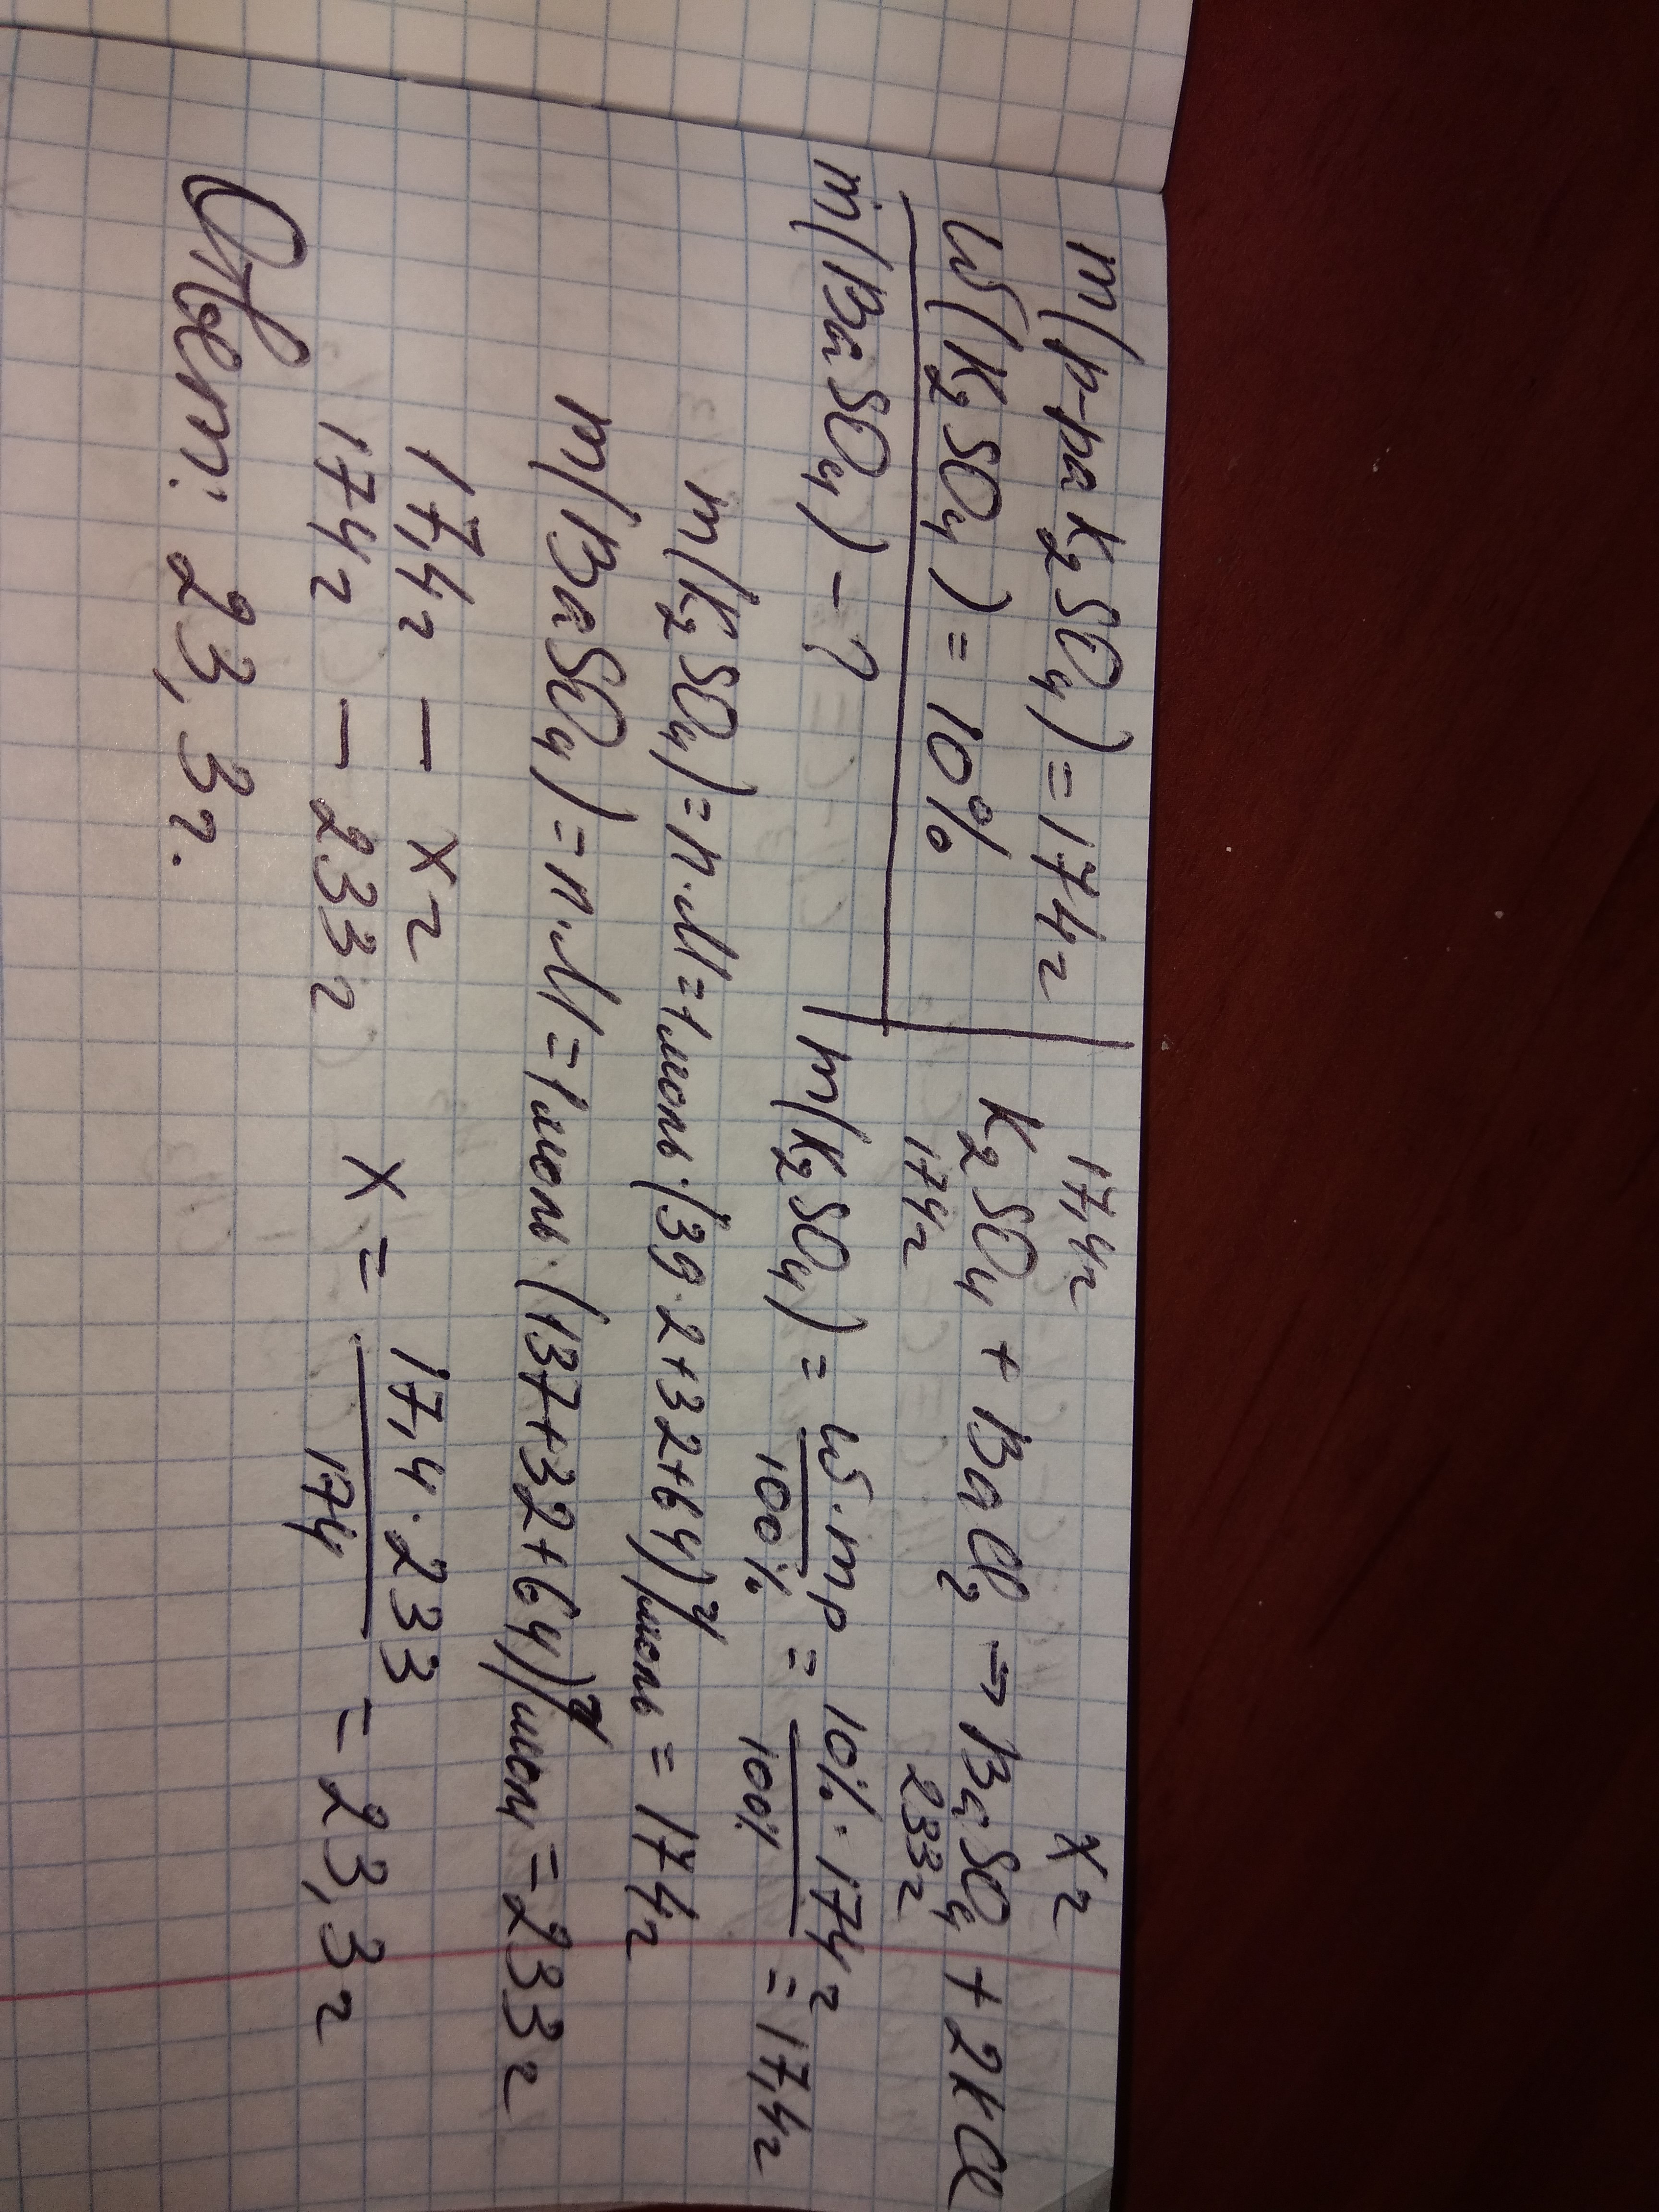 m(р-ра K₂SO₄) = 174г
17,4г xг
ω(K₂SO₄) = 10%
K₂SO₄ + BaCl₂ → BaSO₄ + 2KCl
174г 233г
m(BaSO₄) - ?
m(K₂SO₄) = ω·mр/100% = 10%·174г/100% = 17,4г
m(K₂SO₄) = n·M = 1моль·(39·2+32+64)г/моль = 174г
m(BaSO₄) = n·M = 1моль·(137+32+64)г/моль = 233г
17,4г — xг
174г — 233г
x = 17,4·233/174 = 23,3г
Ответ: 23,3г.